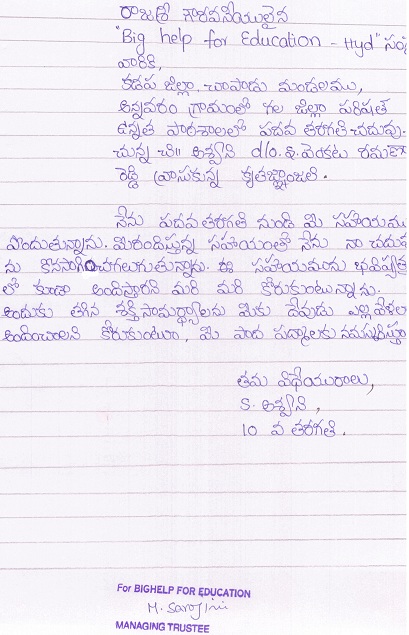 రాజశ్రీ గౌరవనీయులైన
"Big help for Education - Hyd" సంస్
వారికి,
కడప జిల్లా, చాపాడు మండలము,
అన్నవరం గ్రామంలో గల జిల్లా పరిషత్
ఉన్నత పాఠశాలలో పదవ తరగతి చదువు-
చున్న చి॥ అశ్వని d/o. శ. వెంకట రమణా
రెడ్డి వ్రాసుకున్న కృతజ్ఞాంజలి.
నేను పదవతరగతి నుండి మీ సహాయము
పొందుతున్నాను. మీరందిస్తున్న సహాయంతో నేను నా చదువు
ను కొనసాగించగలుగుతున్నాను. ఈ సహాయమును భవిష్యత్
లో కూడా అందిస్తారని మరీ మరీ కోరుకుంటున్నాను.
అందుకు తగిన శక్తిసామర్థ్యాలను మీకు దేవుడు ఎల్లవేళల
అందించాలని కోరుకుంటూ, మీ పాద పద్మాలకు నమస్కరిస్తూ
తమ విధేయురాలు,
S. అశ్వని,
10 వ తరగతి.
For BIGHELP FOR EDUCATION
M. Sarojini
MANAGING TRUSTEE